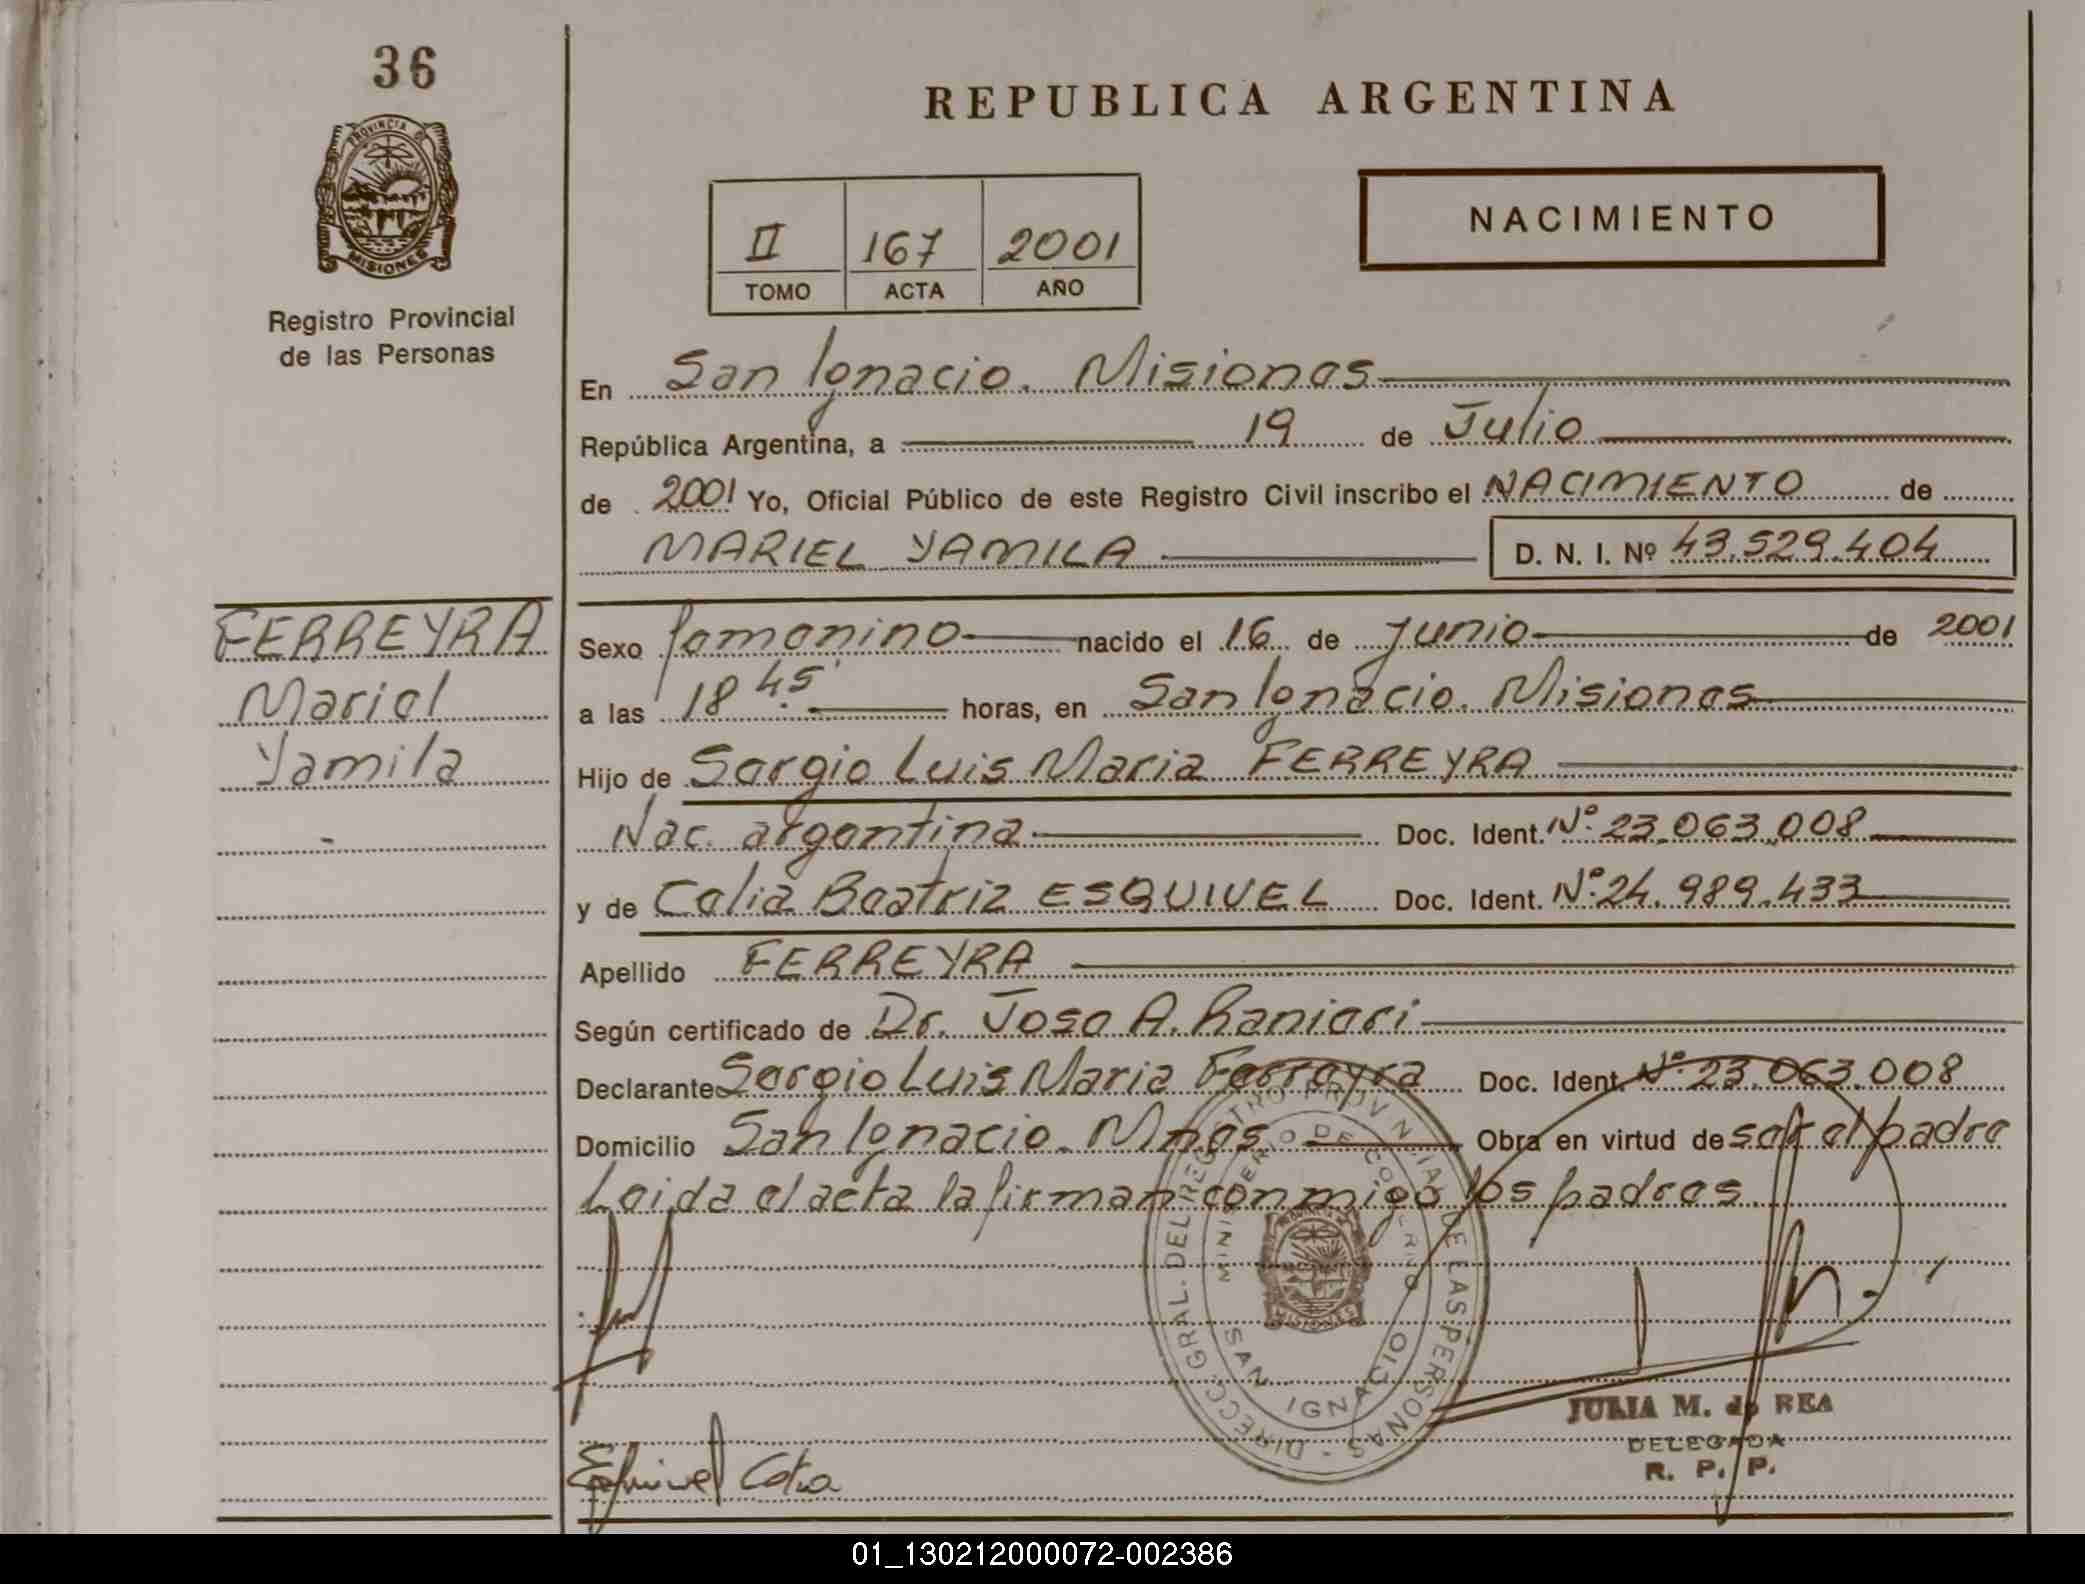 36
PROVINCIA DE
MISIONES
Registro Provincial
de las Personas
REPUBLICA ARGENTINA
II 167 2001
TOMO ACTA AÑO
NACIMIENTO
En San Ignacio. Misiones
República Argentina, a 19 de Julio
de 2001 Yo, Oficial Público de este Registro Civil inscribo el NACIMIENTO de
MARIEL YAMILA D. N. I. Nº 43.529.404
FERREYRA
Mariel
Yamila
Sexo femenino nacido el 16 de junio de 2001
a las 18 45' horas, en San Ignacio. Misiones
Hijo de Sergio Luis Maria FERREYRA
Nac. argentina Doc. Ident. Nº 23.063.008
y de Celia Beatriz ESQUIVEL Doc. Ident. Nº 24.989.433
Apellido FERREYRA
Según certificado de Dr. Jose A. Ranieri
Declarante Sergio Luis Maria Ferreyra Doc. Ident. Nº 23.063.008
Domicilio San Ignacio. Mnes Obra en virtud de ser el padre
Leida el acta la firman conmigo los padres.
DIRECC. GRAL. DEL REGISTRO PROVINCIAL DE LAS PERSONAS
MINISTERIO DE GOBIERNO
SAN IGNACIO
MISIONES
JULIA M. de REA
DELEGADA
R. P. P.
Esquivel Celia
01_130212000072-002386